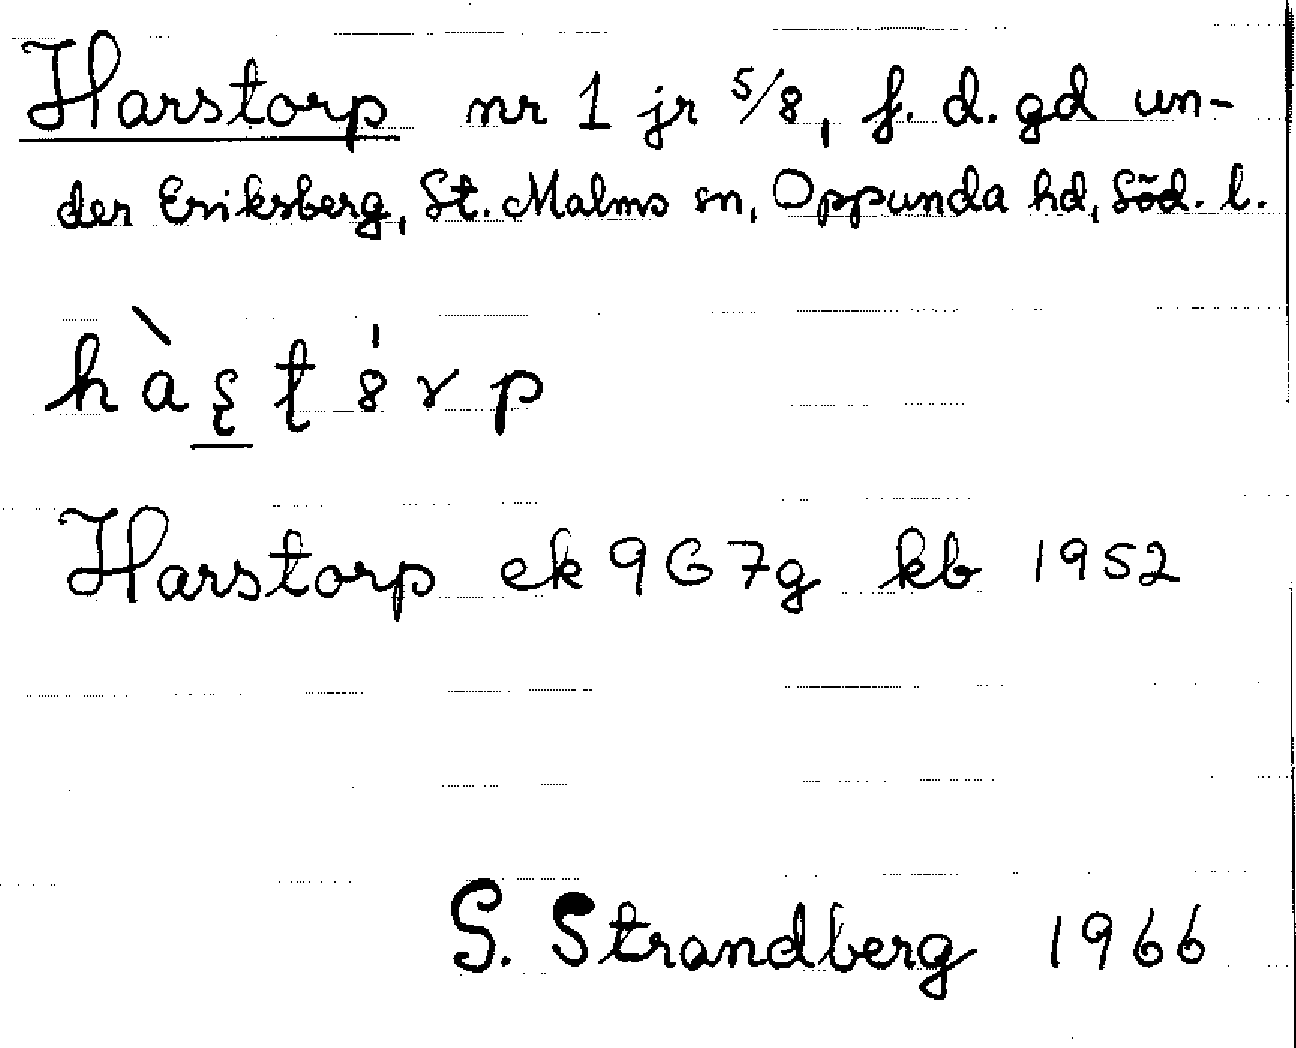 Harstorp nr 1 jr 5/8, f. d. gd un-
der Eriksberg, St. Malms sn, Oppunda hd, Söd. l.
Harstorp ek 9G7g kb 1952
S. Strandberg 1966